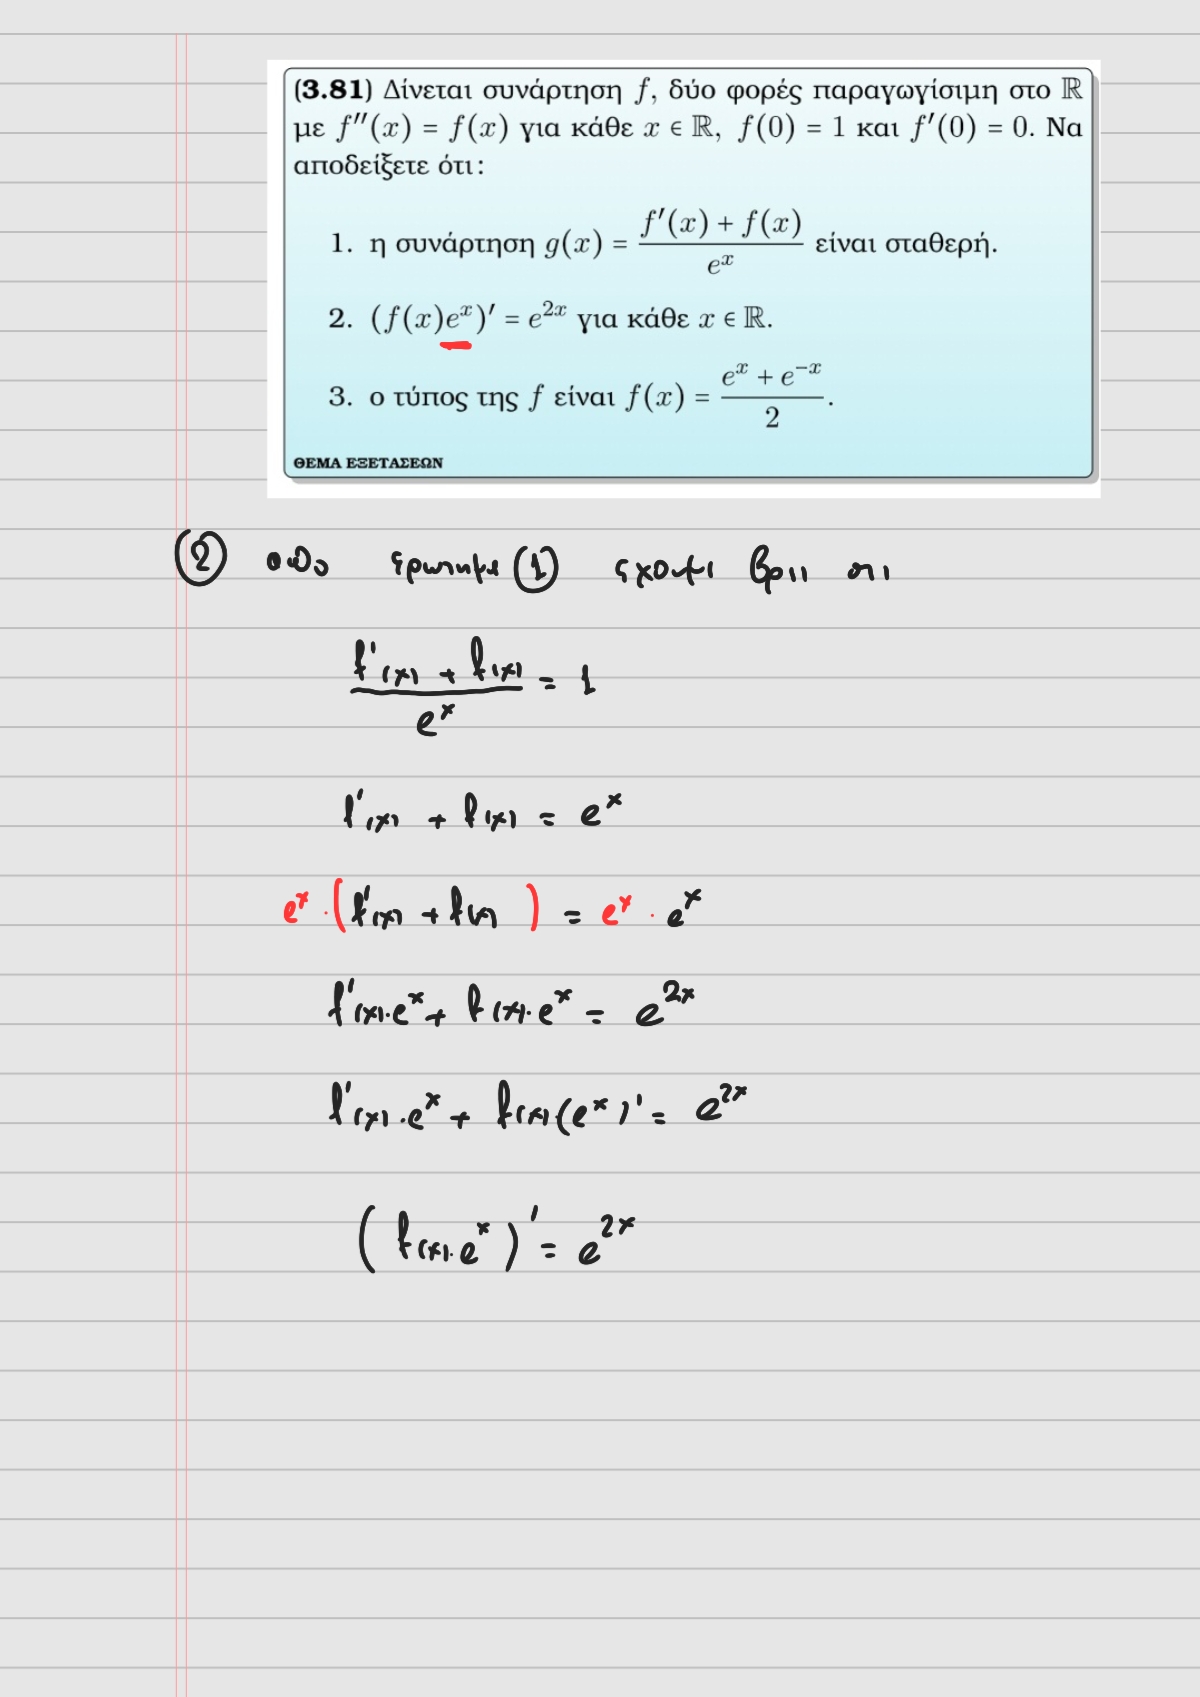 (3.81) Δίνεται συνάρτηση f, δύο φορές παραγωγίσιμη στο ℝ
με f''(x) = f(x) για κάθε x ∈ ℝ, f(0) = 1 και f'(0) = 0. Να
αποδείξετε ότι:
1. η συνάρτηση g(x) = (f'(x) + f(x)) / e^x είναι σταθερή.
2. (f(x)e^x)' = e^{2x} για κάθε x ∈ ℝ.
3. ο τύπος της f είναι f(x) = (e^x + e^{-x}) / 2.
ΘΕΜΑ ΕΞΕΤΑΣΕΩΝ
(2) από ερώτημα (1) έχουμε βρει οτι
(f'(x) + f(x)) / e^x = 1
f'(x) + f(x) = e^x
e^x · (f'(x) + f(x)) = e^x · e^x
f'(x)·e^x + f(x)·e^x = e^{2x}
f'(x)·e^x + f(x)(e^x)' = e^{2x}
(f(x)·e^x)' = e^{2x}